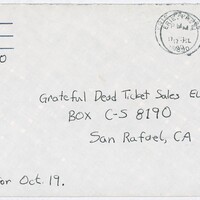 Grateful Dead Ticket Sales
BOX C-S 8190
San Rafael, CA
for Oct. 19.